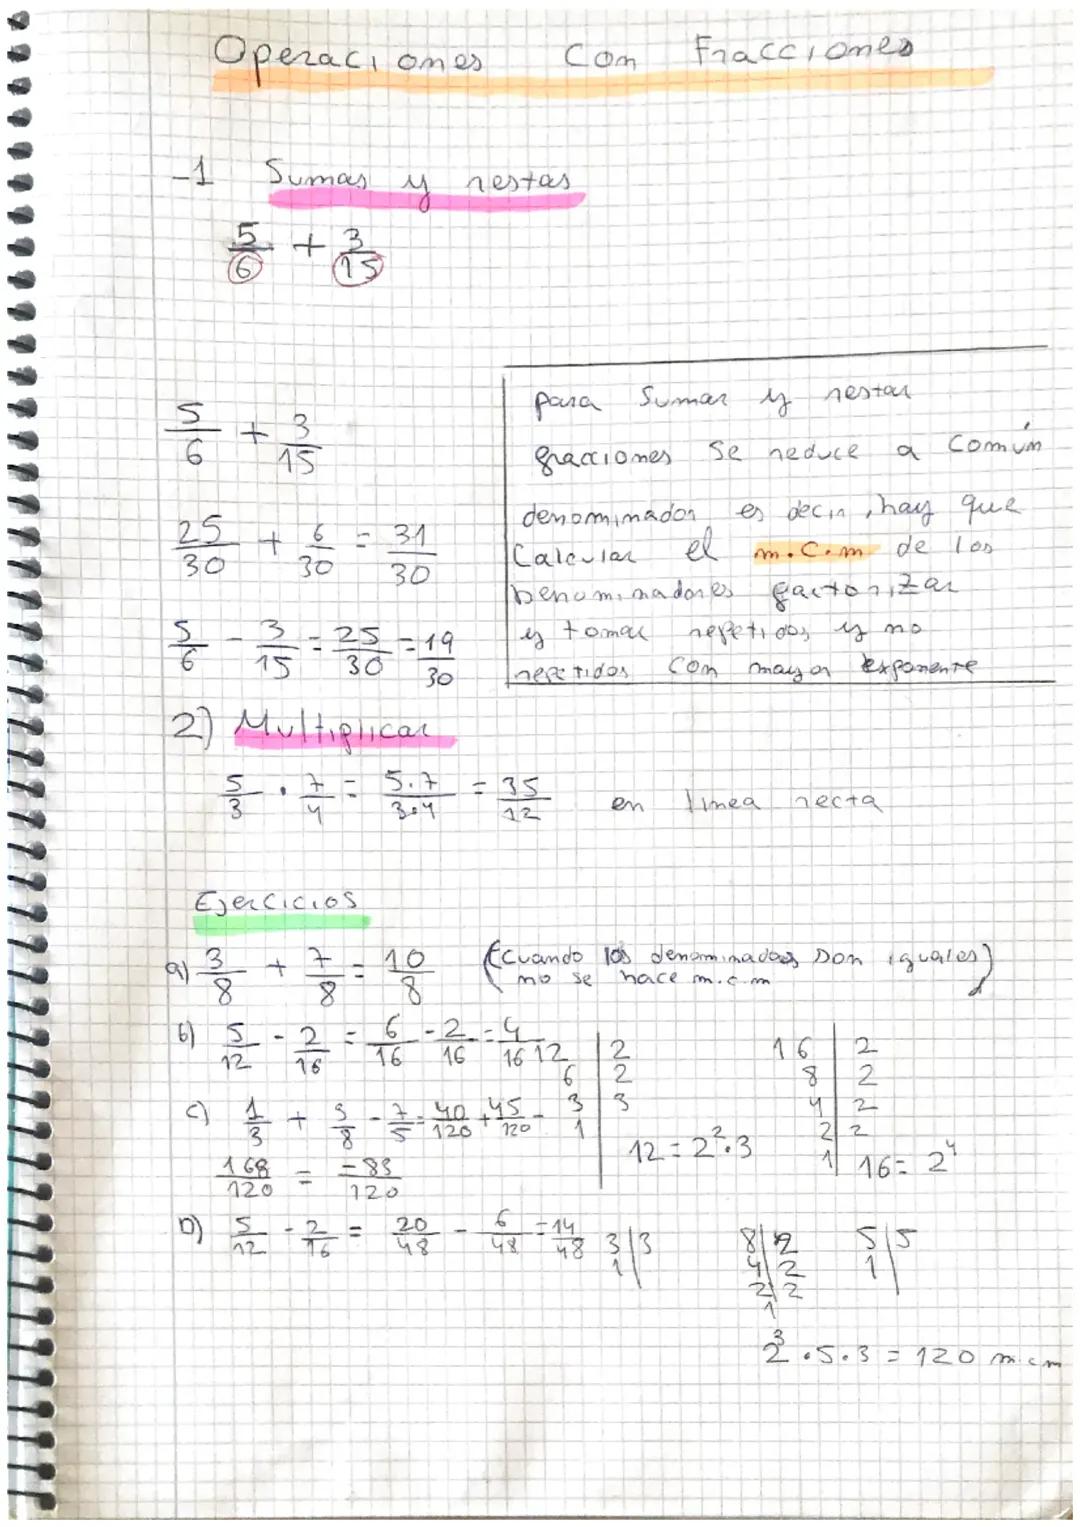 Operaciones con Fracciones
-1 Sumas y restas
5/6 + 3/15
5/6 + 3/15
25/30 + 6/30 = 31/30
5/6 - 3/15 = 25/30 = 19/30
para sumar y restar
gracciones se reduce a común
denominador es decir, hay que
Calcular el m.c.m de los
denominadores factorizar
y tomar repetidos y no
repetidos con mayor exponente
2) Multiplicar
5/3 · 7/4 = 5.7/3.4 = 35/12 en linea recta
Ejercicios
a) 3/8 + 7/8 = 10/8 (Cuando los denominadores son iguales)
no se hace m.c.m
b) 5/12 - 2/16 = 6/16 - 2/16 = 4/16
12 | 2
6 | 2
3 | 3
1
12 = 2².3
16 | 2
8 | 2
4 | 2
2 | 2
1
16 = 2⁴
c) 1/3 + 3/8 - 7/5 = 40/120 + 45/120 -
168/120 = -83/120
D) 5/12 - 2/16 = 20/48 - 6/48 = 14/48
3 | 3
1
8 | 2
4 | 2
2 | 2
1
5 | 5
1
2³ . 5 . 3 = 120 m.c.m